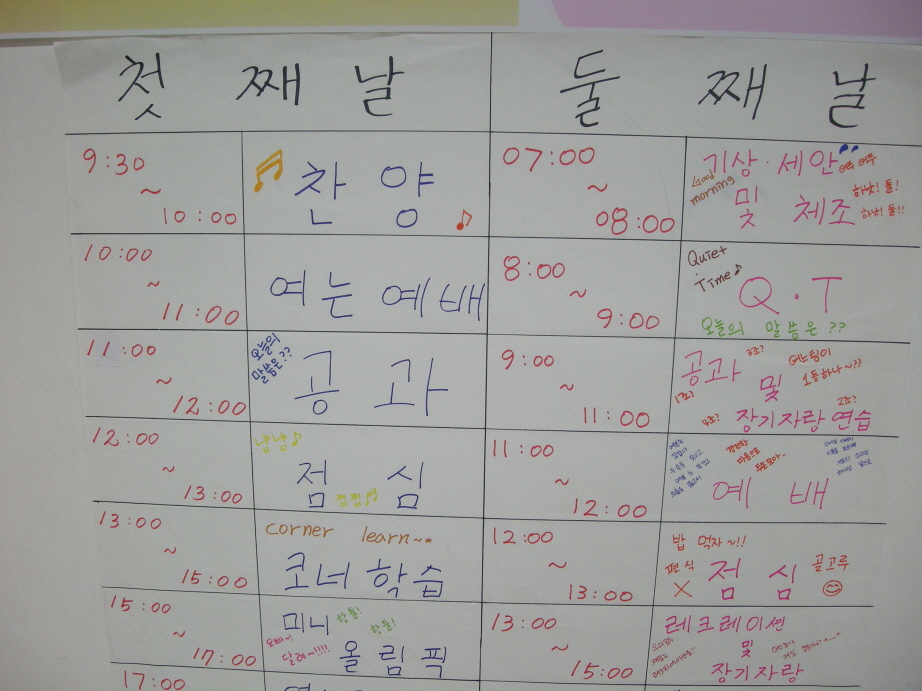 첫 째 날
9:30 ~ 10:00
찬 양
10:00 ~ 11:00
여는 예배
11:00 ~ 12:00
오늘의
말씀은??
공 과
12:00 ~ 13:00
냠냠♪
점 심
쩝쩝♬
13:00 ~ 15:00
corner learn~
코너 학습
15:00 ~ 17:00
미니 핫둘!
핫둘!
달려~!!!!
올림픽
17:00
둘 째 날
07:00 ~ 08:00
기상·세안
Good
morning
및 체조
하낫! 둘!
하낫! 둘!!
8:00 ~ 9:00
Quiet
Time♪
Q.T
오늘의 말씀은??
9:00 ~ 11:00
공과 및
3조?
어느팀이
1등하나~??
1조?
4조?
2조?
장기자랑 연습
11:00 ~ 12:00
경건한
마음으로
두손모아..
예 배
12:00 ~ 13:00
밥 먹자~!!
편식
X
점 심
골고루
13:00 ~ 15:00
레크레이션
및
장기자랑